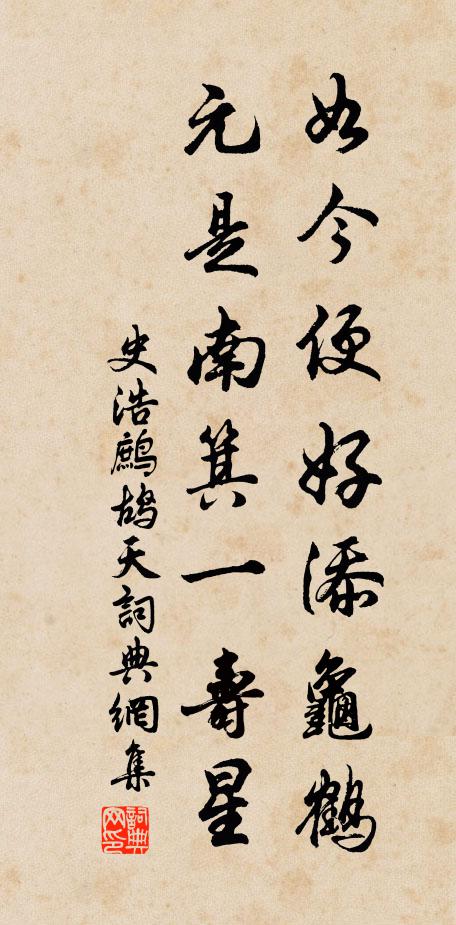 如今便好添龜鶴
元是南箕一壽星
史浩鷓鴣天詞典網集
詞典网印